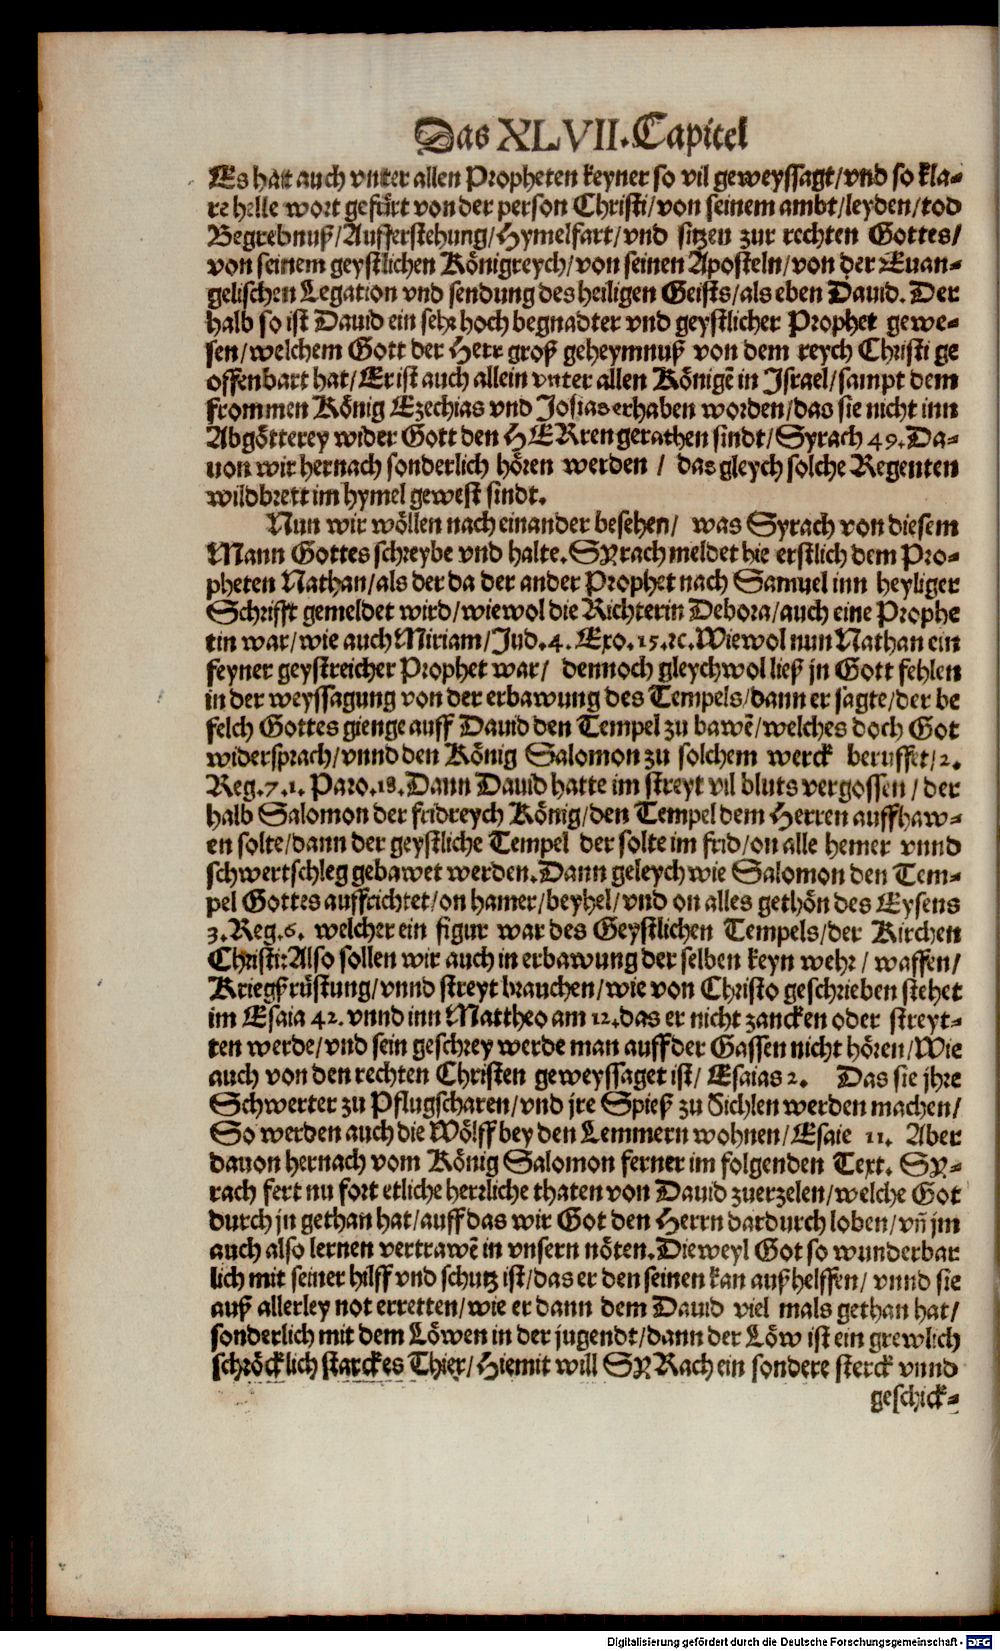 Das XLVII. Capitel
Es hat auch vnter allen Propheten keyner so vil geweyssagt/vnd so kla-
re helle wort gefürt von der person Christi/von seinem ambt/leyden/tod
Begrebnuß/Aufferstehung/Hymelfart/vnd sitzen zur rechten Gottes/
von seinem geystlichen Königreych/von seinen Aposteln/von der Euan-
gelischen Legation vnd sendung des heiligen Geists/als eben Dauid. Der
halb so ist Dauid ein sehr hoch begnadter vnd geystlicher Prophet gewe-
sen/welchem Gott der Herr groß geheymnuß von dem reych Christi ge
offenbart hat/Er ist auch allein vnter allen Königē in Israel/sampt dem
frommen König Ezechias vnd Josias erhaben worden/das sie nicht inn
Abgötterey wider Gott den HERren gerathen sindt/Syrach 49. Da-
uon wir hernach sonderlich hören werden / das gleych solche Regenten
wildbrett im hymel gewest sindt.
Nun wir wöllen nach einander besehen/ was Syrach von diesem
Mann Gottes schreybe vnd halte. SYrach meldet hie erstlich dem Pro-
pheten Nathan/als der da der ander Prophet nach Samuel inn heyliger
Schrifft gemeldet wird/wiewol die Richterin Debora/auch eine Prophe
tin war/wie auch Miriam/Jud. 4. Exo. 15. ꝛc. Wiewol nun Nathan ein
feyner geystreicher Prophet war/ dennoch gleychwol ließ jn Gott fehlen
in der weyssagung von der erbawung des Tempels/dann er sagte/der be
felch Gottes gienge auff Dauid den Tempel zu bawē/welches doch Got
widersprach/vnnd den König Salomon zu solchem werck beruffet/2.
Reg. 7. 1. Paro. 18. Dann Dauid hatte im streyt vil bluts vergossen / der
halb Salomon der fridreych König/den Tempel dem Herren auffbaw-
en solte/dann der geystliche Tempel der solte im frid/on alle hemer vnnd
schwertschleg gebawet werden. Dann geleych wie Salomon den Tem-
pel Gottes auffrichtet/on hamer/beyhel/vnd on alles gethön des Eysens
3. Reg. 6. welcher ein figur war des Geystlichen Tempels/der Kirchen
Christi: Also sollen wir auch in erbawung der selben keyn wehr / waffen/
Kriegßrüstung/vnnd streyt brauchen/wie von Christo geschrieben stehet
im Esaia 42. vnnd inn Mattheo am 12. das er nicht zancken oder streyt-
ten werde/vnd sein geschrey werde man auff der Gassen nicht hören/Wie
auch von den rechten Christen geweyssaget ist/ Esaias 2. Das sie jhre
Schwerter zu Pflugscharen/vnd jre Spieß zu Sichlen werden machen/
So werden auch die Wölff bey den Lemmern wohnen/Esaie 11. Aber
dauon hernach vom König Salomon ferner im folgenden Text. SY-
rach fert nu fort etliche herrliche thaten von Dauid zuerzelen/welche Got
durch jn gethan hat/auff das wir Got den Herrn dardurch loben/vñ jm
auch also lernen vertrawē in vnsern nöten. Dieweyl Got so wunderbar
lich mit seiner hilff vnd schutz ist/das er den seinen kan außhelffen/ vnnd sie
auß allerley not erretten/wie er dann dem Dauid viel mals gethan hat/
sonderlich mit dem Löwen in der jugendt/dann der Löw ist ein grewlich
schröcklich starckes Thier/Hiemit will SYRach ein sondere sterck vnnd
geschick-
Digitalisierung gefördert durch die Deutsche Forschungsgemeinschaft - DFG